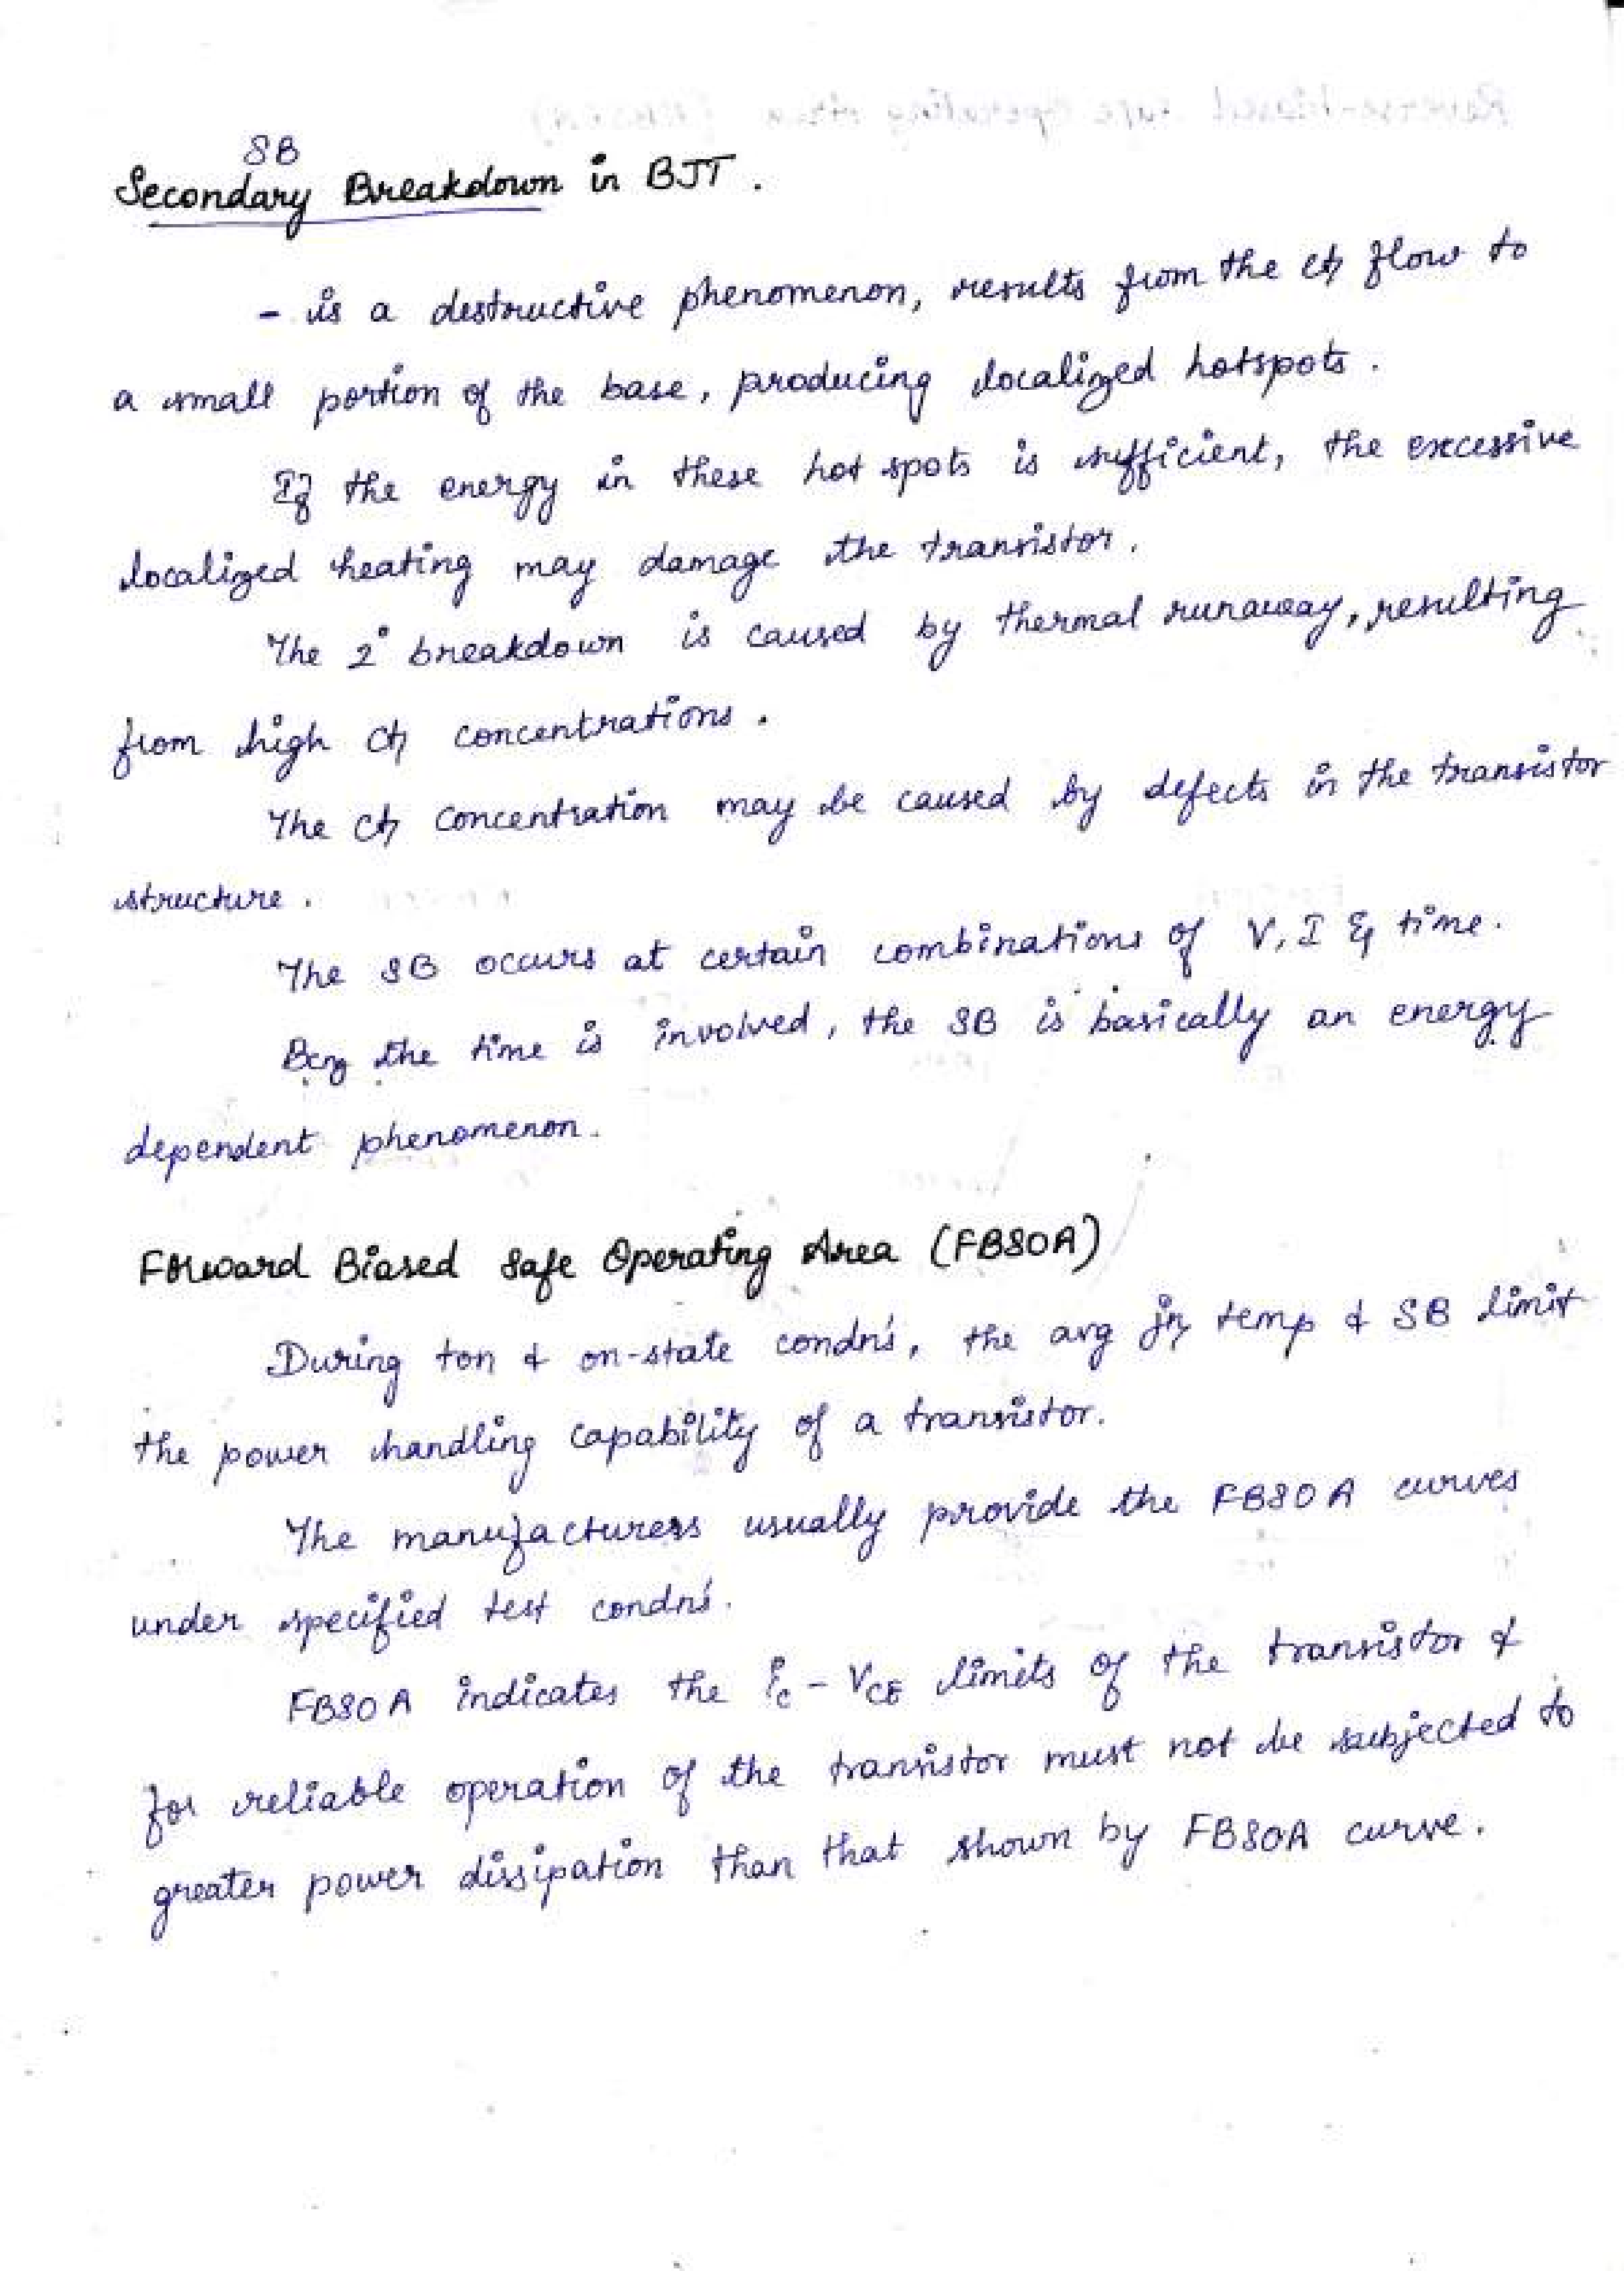 SB
Secondary Breakdown in BJT.
- is a destructive phenomenon, results from the ct flow to
a small portion of the base, producing localized hotspots.
If the energy in these hot spots is sufficient, the excessive
localized heating may damage the transistor.
The 2° breakdown is caused by thermal runaway, resulting
from high ct concentrations.
The ct concentration may be caused by defects in the transistor
structure.
The SB occurs at certain combinations of V, I & time.
Bcz the time is involved, the SB is basically an energy
dependent phenomenon.
Forward Biased Safe Operating Area (FBSOA)
During ton & on-state condn's, the avg jn temp & SB limit
the power handling capability of a transistor.
The manufacturers usually provide the FBSOA curves
under specified test condn's.
FBSOA indicates the ic - VCE limits of the transistor &
for reliable operation of the transistor must not be subjected to
greater power dissipation than that shown by FBSOA curve.